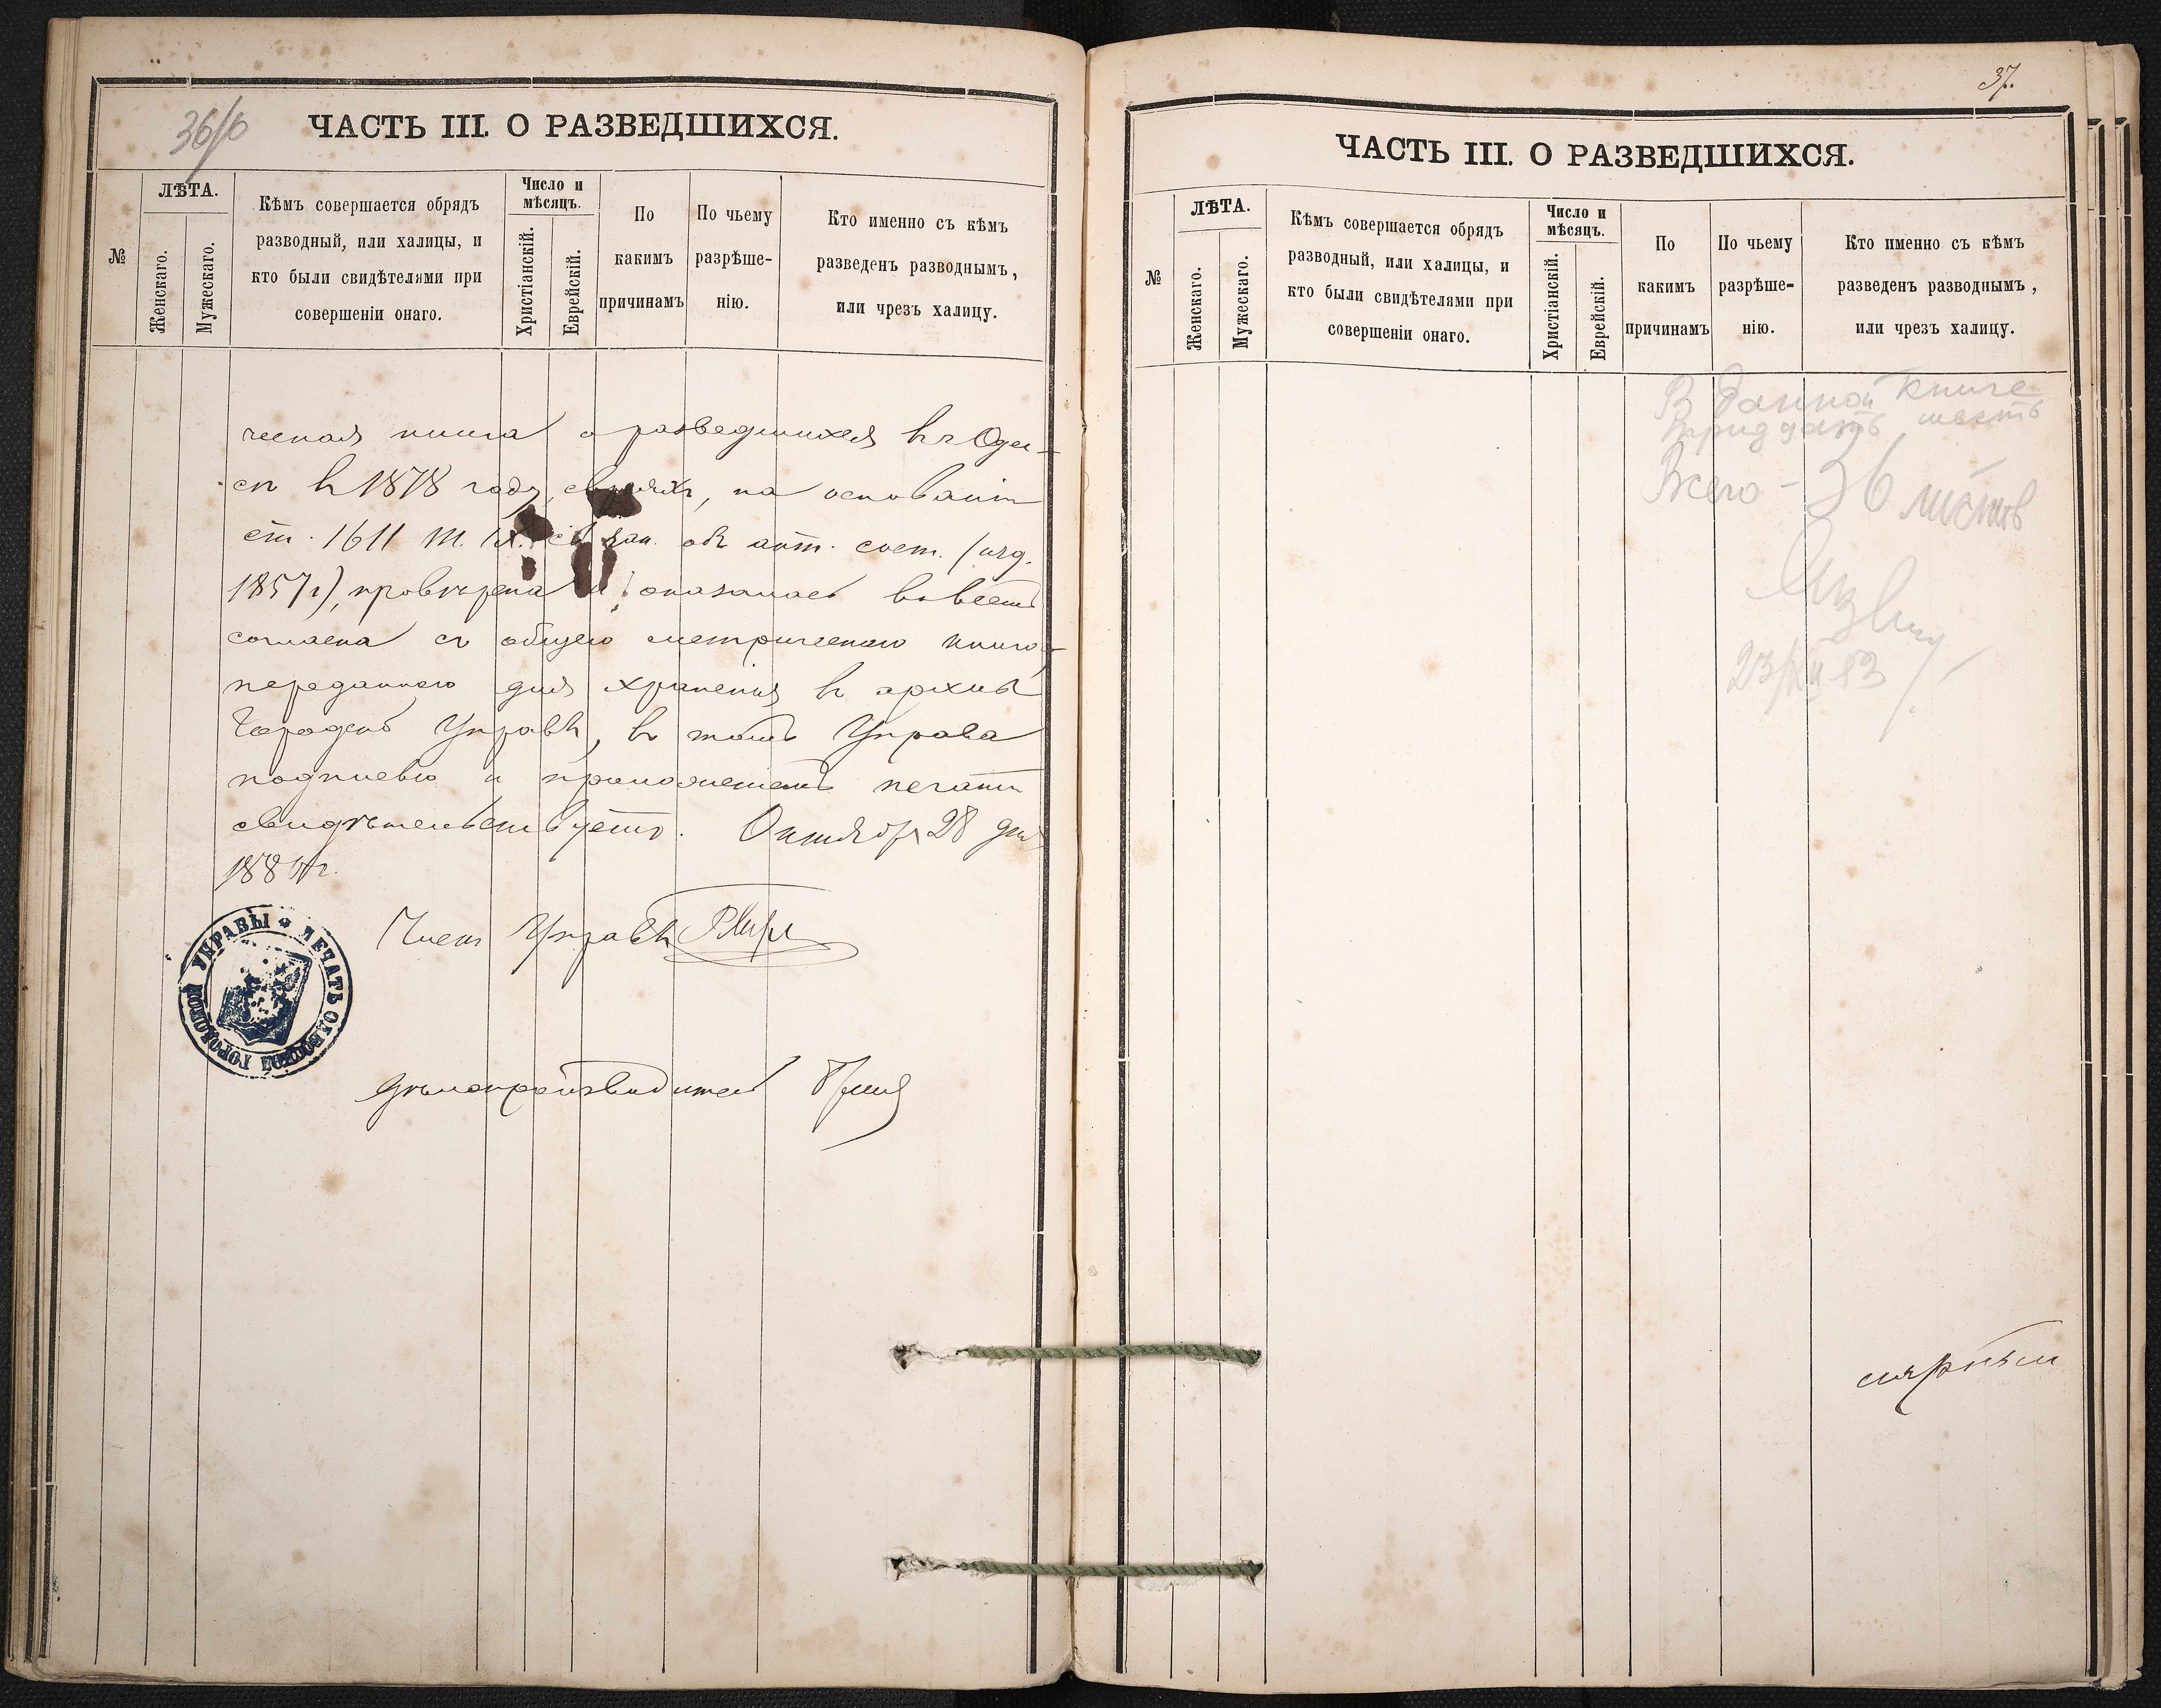 36/б
ЧАСТЬ III. О РАЗВЕДШИХСЯ.
№
ЛѢТА.
Женскаго.
Мужескаго.
Кѣмъ совершается обрядъ
разводный, или халицы, и
кто были свидѣтелями при
совершеніи онаго.
Число и
мѣсяцъ.
Христіанскій.
Еврейскій.
По
какимъ
причинамъ
По чьему
разрѣше-
нію.
Кто именно съ кѣмъ
разведенъ разводнымъ,
или чрезъ халицу.
ческая книга о разведшихся въ Одес-
сѣ въ 1878 году евреяхъ, на основаніи
ст. 1611 т. IX. св. зак. объ акт. сост. (изд.
1857 г), провѣрена и оказалась во всемъ
согласна съ общею метрическою книгою,
переданною для хранения въ архивъ
Городск. Управы, въ томъ Управа
подписью и приложеніемъ печати
свидѣтельствуетъ. Октября 28 дня
188 г.
Членъ Управы
ПЕЧАТЬ ОДЕССКОЙ ГОРОДСКОЙ УПРАВЫ
Дѣлопроизводитель
37.
ЧАСТЬ III. О РАЗВЕДШИХСЯ.
№
ЛѢТА.
Женскаго.
Мужескаго.
Кѣмъ совершается обрядъ
разводный, или халицы, и
кто были свидѣтелями при
совершеніи онаго.
Число и
мѣсяцъ.
Христіанскій.
Еврейскій.
По
какимъ
причинамъ
По чьему
разрѣше-
нію.
Кто именно съ кѣмъ
разведенъ разводнымъ,
или чрезъ халицу.
В данной книге
тридцать шесть
Всего - 36 листов
23/XII 83